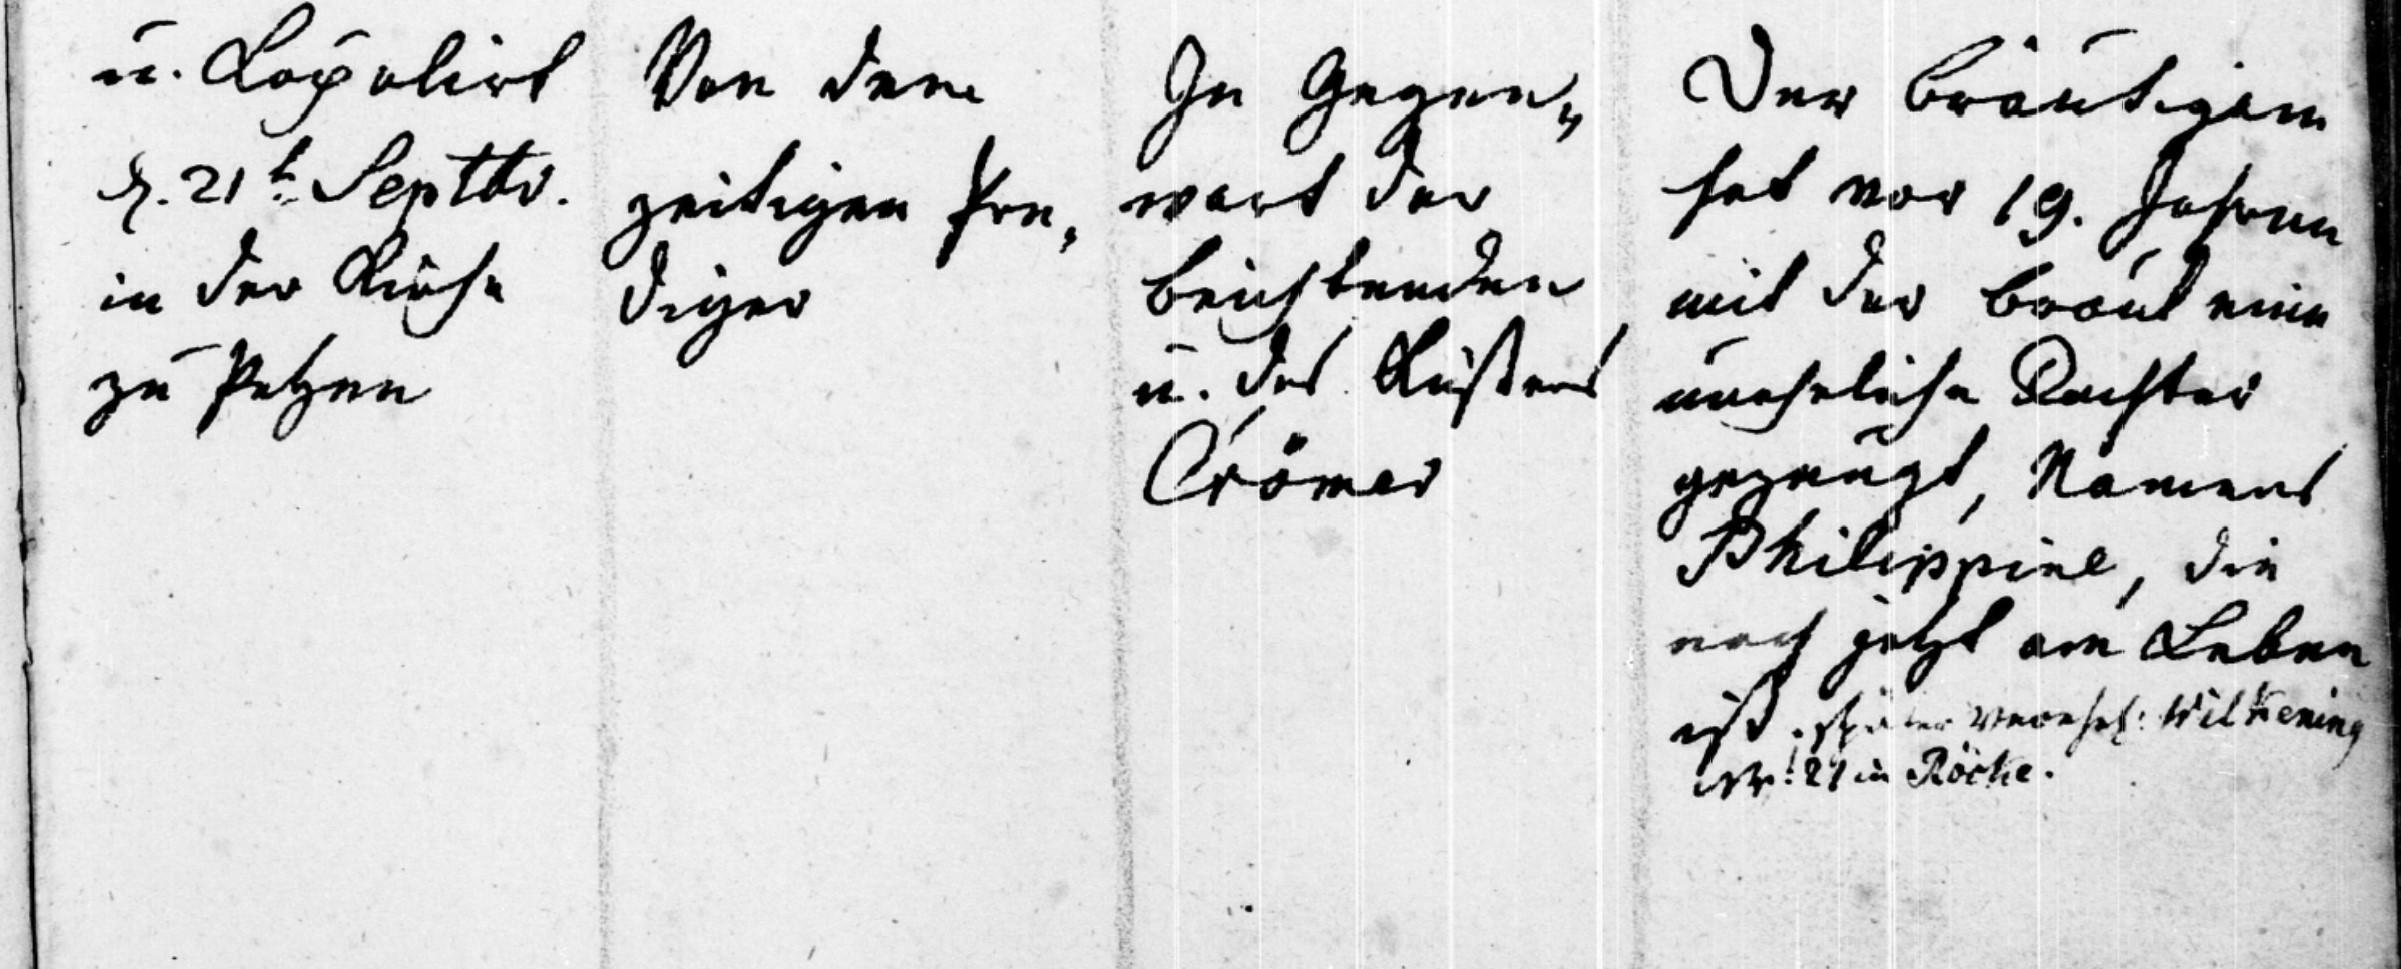 u. Copulirt
d. 21t. Septbr.
in der Kirche
zu Petzen
Von dem
zeitigen Pre,
diger
In Gegen„
wart der
Beichtenden
u. des Küsters
Crömer
Der Bräutigam
hat vor 19. Jahren
mit der Braut eine
uneheliche Tochter
gezeugt, Namens
Philippine, die
noch jetzt am Leben
ist. später verehel: Wilkening
Nr. 21 in Röcke.